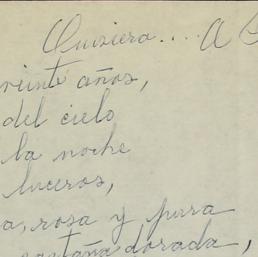 Quisiera.... A
veinte años,
del cielo
la noche
luceros,
a, rosa y pura
castaña dorada,